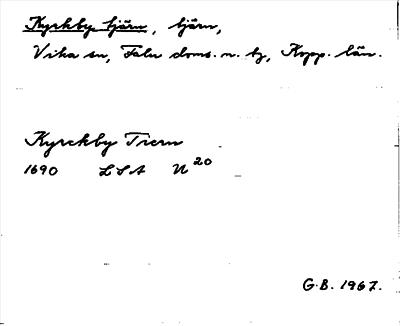 Kyrkby tjärn, tjärn,
Vika sn, Falu doms. n. tg, Kopp. län.
Kyrckby Tiern
1690 LSA U 20
G.B. 1967.